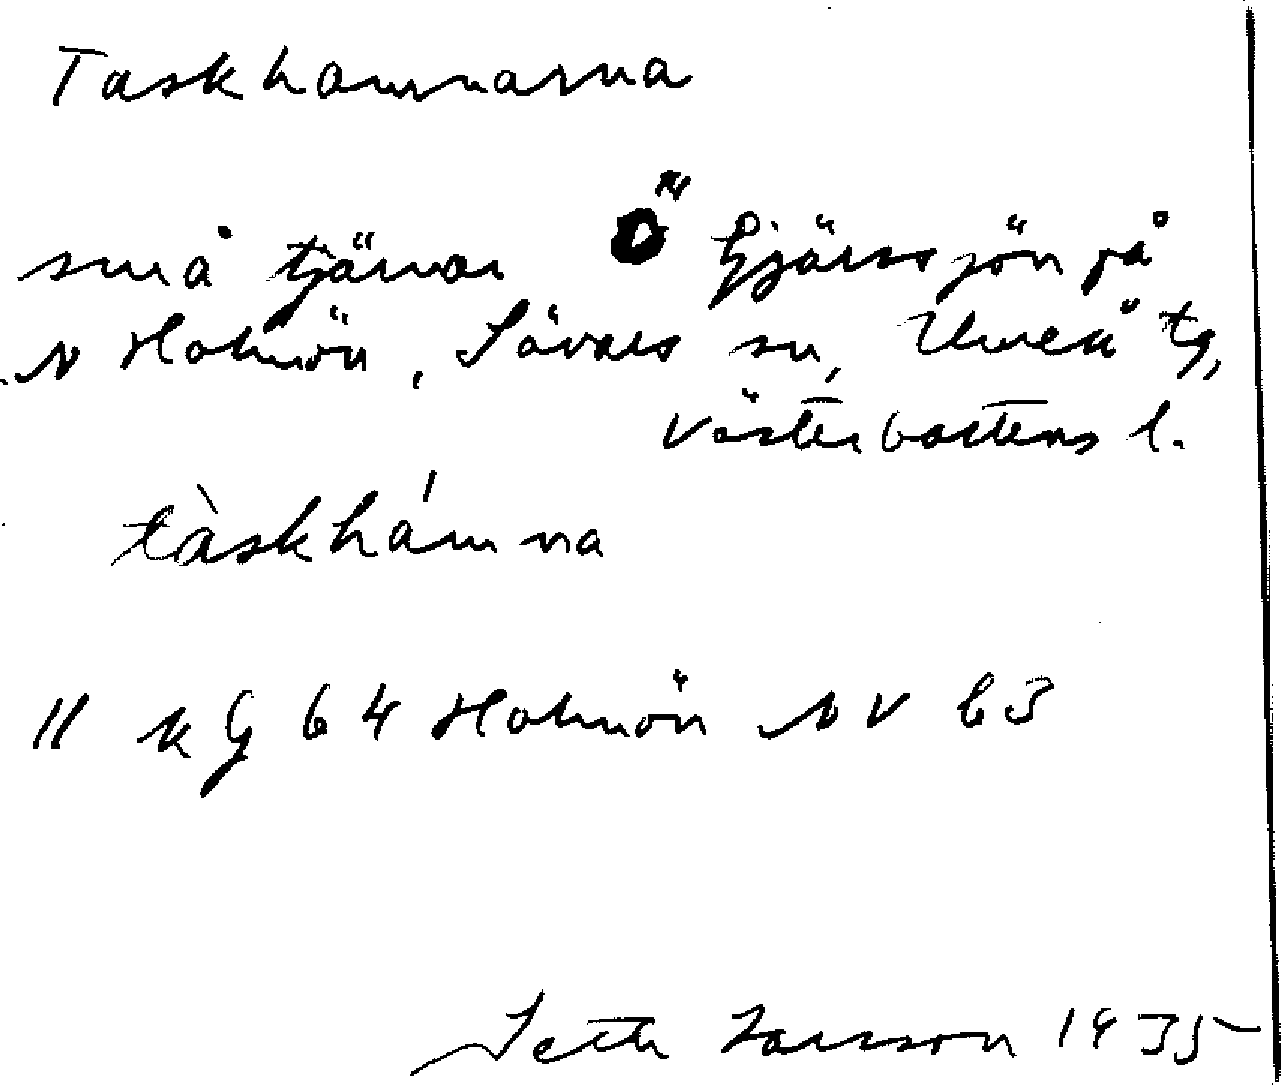 Taskhamnarna
små tjärnar Ö fjärssjön på
N Holmön, Sävars sn, Umeå tg,
Västerbottens l.
tàskhámna
11 k G 64 Holmön NV 63
Seth Larsson 1935